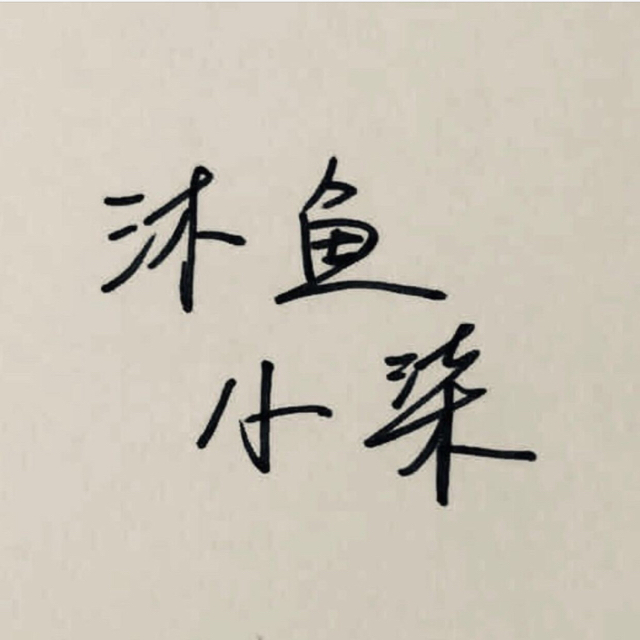 沐鱼
小柒